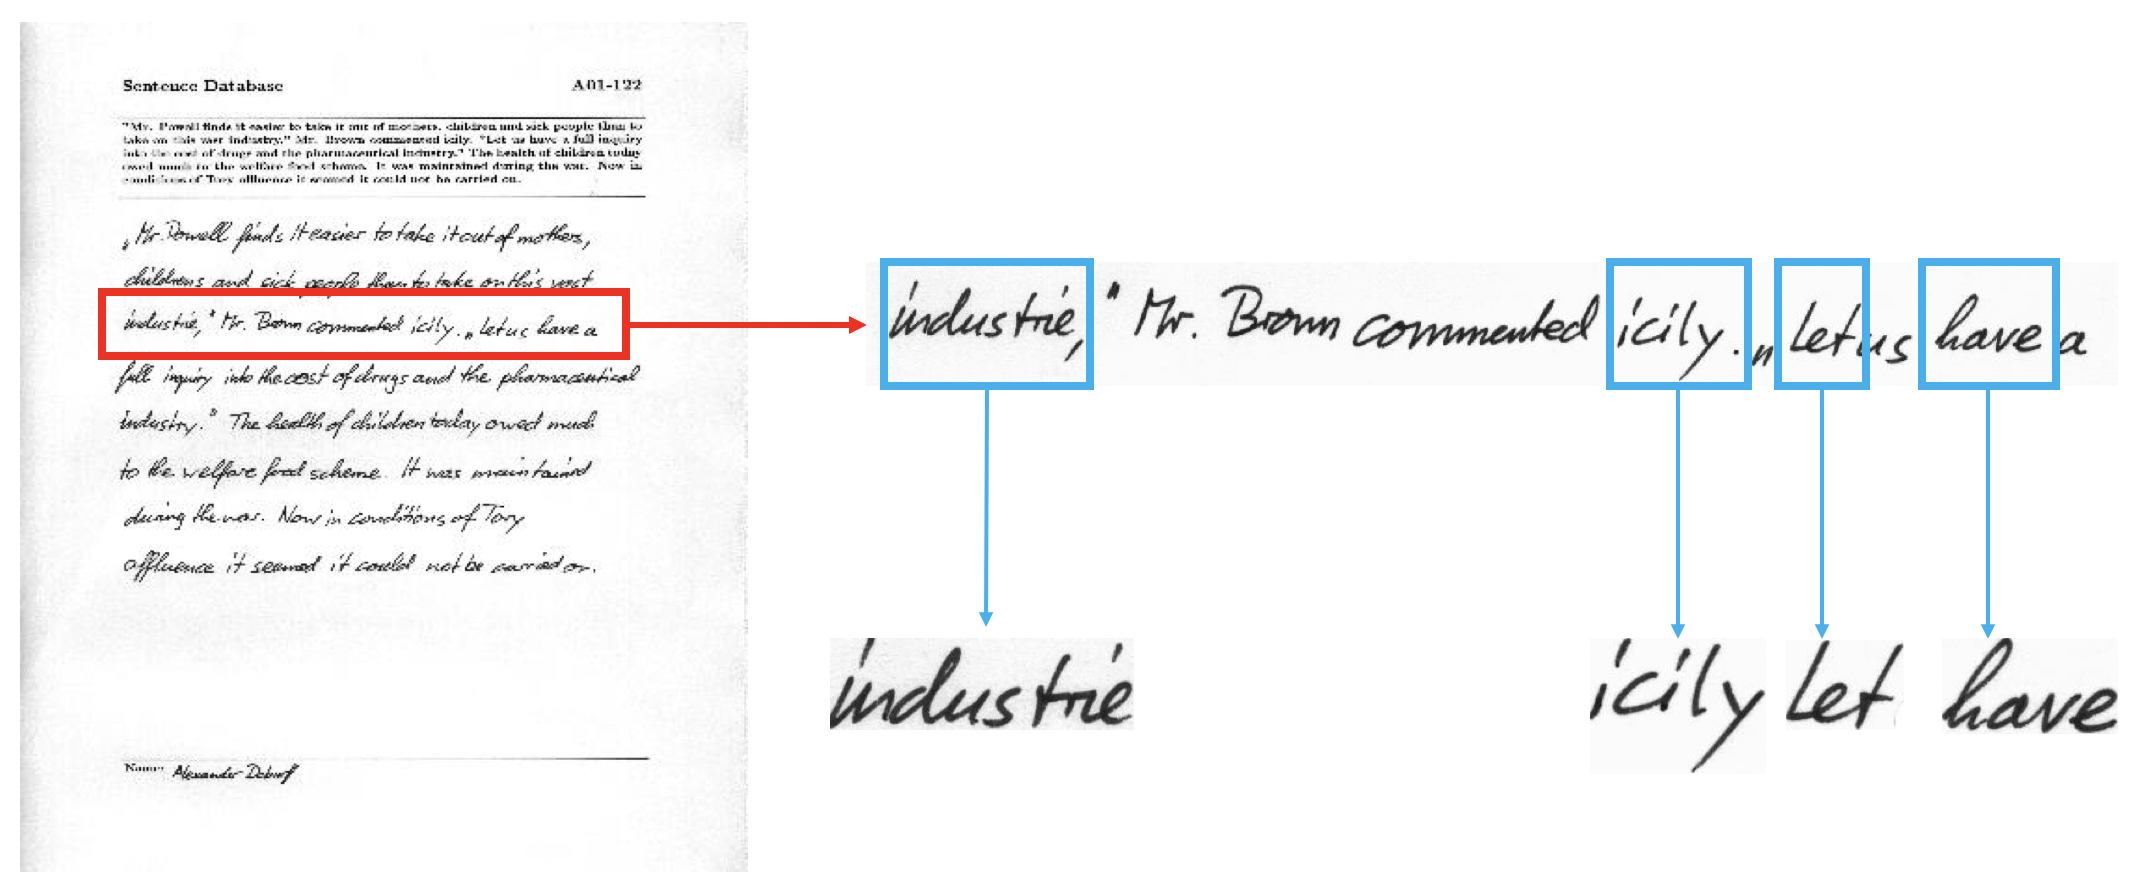 Sentence Database A01-122
"Mr. Powell finds it easier to take it out of mothers, children and sick people than to
take on this vast industry," Mr. Brown commented icily. "Let us have a full inquiry
into the cost of drugs and the pharmaceutical industry." The health of children today
owed much to the welfare food scheme. It was maintained during the war. Now in
conditions of Tory affluence it seemed it could not be carried on.
„Mr. Powell finds it easier to take it out of mothers,
childrens and sick people than to take on this vast
industrie," Mr. Brown commented icily. „Let us have a
full inquiry into the cost of drugs and the pharmaceutical
industry." The health of children today owed much
to the welfare food scheme. It was maintained
during the war. Now in conditions of Tory
affluence it seemed it could not be carried on.
Name: Alexander
industrie," Mr. Brown commented icily. „Let us have a
industrie icily Let have